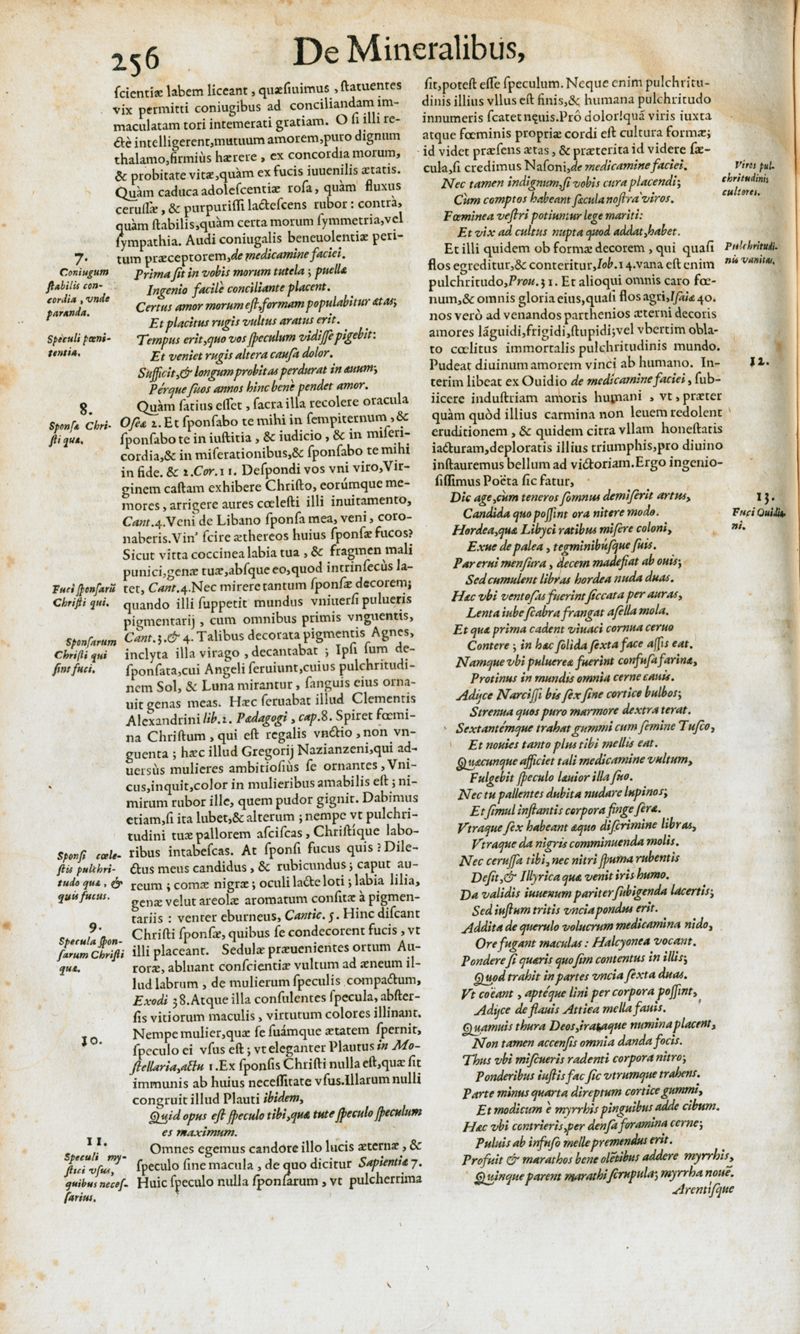 256
De Mineralibus,
ſcientiæ labem liceant, quæſiuimus, ſtatuentes
vix permitti coniugibus ad conciliandam im-
maculatam tori intemerati gratiam. O ſi illi re-
ctè intelligerent,mutuum amorem,puro dignum
thalamo,firmiùs hærere, ex concordia morum,
& probitate vitæ,quàm ex fucis iuuenilis ætatis.
Quàm caduca adoleſcentiæ roſa, quàm fluxus
ceruſſæ, & purpuriſſi lacteſcens rubor: contrà,
quàm ſtabilis,quàm certa morum ſymmetria,vel
ſympathia. Audi coniugalis beneuolentiæ peri-
tum præceptorem,de medicamine faciei.
7.
Coniugum
ſtabilis con-
cordia, vnde
paranda.
Prima ſit in vobis morum tutela; puellæ
Ingenio facilè conciliante placent.
Certus amor morum eſt,formam populabitur ætas;
Et placitus rugis vultus aratus erit.
Speculi pœni-
tentia.
Tempus erit,quo vos ſpeculum vidiſſe pigebit:
Et veniet rugis altera cauſa dolor.
Sufficit,& longum probitas perdurat in æuum;
Pérque ſuos annos hinc benè pendet amor.
8.
Sponſa Chri-
ſti qua.
Quàm ſatius eſſet, ſacra illa recolere oracula
Oſeæ 2. Et ſponſabo te mihi in ſempiternum, &
ſponſabo te in iuſtitia, & iudicio, & in miſeri-
cordia,& in miſerationibus,& ſponſabo te mihi
in fide. & 2.Cor.11. Deſpondi vos vni viro,Vir-
ginem caſtam exhibere Chriſto, eorúmque me-
mores, arrigere aures cœleſti illi inuitamento,
Cant.4.Veni de Libano ſponſa mea, veni, coro-
naberis.Vin' ſcire æthereos huius ſponſæ fucos?
Sicut vitta coccinea labia tua, & fragmen mali
punici,genæ tuæ,abſque eo,quod intrinſecùs la-
Fuci ſponſarū
Chriſti qui.
tet, Cant.4.Nec mirere tantum ſponſæ decorem;
quando illi ſuppetit mundus vniuerſi pulueris
pigmentarij, cum omnibus primis vnguentis,
Sponſarum
Chriſti qui
ſint fuci.
Cant.3.& 4. Talibus decorata pigmentis Agnes,
inclyta illa virago, decantabat; Ipſi ſum de-
ſponſata,cui Angeli ſeruiunt,cuius pulchritudi-
nem Sol, & Luna mirantur, ſanguis eius orna-
uit genas meas. Hæc ſeruabat illud Clementis
Alexandrini lib.2. Pædagogi, cap.8. Spiret fœmi-
na Chriſtum, qui eſt regalis vnctio, non vn-
guenta; hæc illud Gregorij Nazianzeni,qui ad-
uersùs mulieres ambitioſiùs ſe ornantes, Vni-
cus,inquit,color in mulieribus amabilis eſt; ni-
mirum rubor ille, quem pudor gignit. Dabimus
etiam,ſi ita lubet,& alterum; nempe vt pulchri-
tudini tuæ pallorem aſciſcas, Chriſtique labo-
Sponſi cœle-
ſtis pulchri-
tudo quæ, &
quis fucus.
ribus intabeſcas. At ſponſi fucus quis? Dile-
ctus meus candidus, & rubicundus; caput au-
reum; comæ nigræ; oculi lacte loti; labia lilia,
genæ velut areolæ aromatum conſitæ à pigmen-
tariis: venter eburneus, Cantic. 5. Hinc diſcant
9.
Specula ſpon-
ſarum Chriſti
qua.
Chriſti ſponſæ, quibus ſe condecorent fucis, vt
illi placeant. Sedulæ præuenientes ortum Au-
roræ, abluant conſcientiæ vultum ad æneum il-
lud labrum, de mulierum ſpeculis compactum,
Exodi 38.Atque illa conſulentes ſpecula, abſter-
ſis vitiorum maculis, virtutum colores illinant.
10.
Nempe mulier,quæ ſe ſuámque ætatem ſpernit,
ſpeculo ei vſus eſt; vt eleganter Plautus in Mo-
ſtellaria,actu 1.Ex ſponſis Chriſti nulla eſt,quæ ſit
immunis ab huius neceſſitate vſus.Illarum nulli
congruit illud Plauti ibidem,
Quid opus eſt ſpeculo tibi,quæ tute ſpeculo ſpeculum
es maximum.
11.
Speculi my-
ſtici vſus,
quibus neceſ-
ſarius.
Omnes egemus candore illo lucis æternæ, &
ſpeculo ſine macula, de quo dicitur Sapientiæ 7.
Huic ſpeculo nulla ſponſarum, vt pulcherrima
ſit,poteſt eſſe ſpeculum. Neque enim pulchritu-
dinis illius vllus eſt finis,& humana pulchritudo
innumeris ſcatet nęuis.Prô dolor!quã viris iuxta
atque fœminis propriæ cordi eſt cultura formæ;
id videt præſens ætas, & præterita id videre ſæ-
cula,ſi credimus Naſoni,de medicamine faciei.
Viros pul-
chritudinis
cultores.
Nec tamen indignum,ſi vobis cura placendi;
Cùm comptos habeant ſæcula noſtra viros.
Fœminea veſtri potiuntur lege mariti:
Et vix ad cultus nupta quod addat,habet.
Et illi quidem ob formæ decorem, qui quaſi
Pulchritudi-
nis vanitas.
flos egreditur,& conteritur,Iob.14.vana eſt enim
pulchritudo,Prou.31. Et alioqui omnis caro fœ-
num,& omnis gloria eius,quaſi flos agri,Iſaiæ 40.
nos verò ad venandos parthenios æterni decoris
amores lãguidi,frigidi,ſtupidi;vel vbertim obla-
to cœlitus immortalis pulchritudinis mundo.
Pudeat diuinum amorem vinci ab humano. In-
12.
terim libeat ex Ouidio de medicamine faciei, ſub-
iicere induſtriam amoris humani, vt, præter
quàm quòd illius carmina non leuem redolent
eruditionem, & quidem citra vllam honeſtatis
iacturam,deploratis illius triumphis,pro diuino
inſtauremus bellum ad victoriam.Ergo ingenio-
ſiſſimus Poëta ſic fatur,
13.
Fuci Ouidia-
ni.
Dic age,cùm teneros ſomnus demiſerit artus,
Candida quo poſſint ora nitere modo.
Hordea,quæ Libyci ratibus miſere coloni,
Exue de palea, tegminibúſque ſuis.
Par erui menſura, decem madefiat ab ouis;
Sed cumulent libras hordea nuda duas.
Hæc vbi ventoſas fuerint ſiccata per auras,
Lenta iube ſcabra frangat aſella mola.
Et quæ prima cadent viuaci cornua ceruo
Contere; in hæc ſolida ſexta face aſſis eat.
Namque vbi puluereæ fuerint confuſa farinæ,
Protinus in mundis omnia cerne cauis.
Adijce Narciſſi bis ſex ſine cortice bulbos;
Strenua quos puro marmore dextra terat.
Sextantémque trahat gummi cum ſemine Tuſco,
Et nouies tanto plus tibi mellis eat.
Quæcunque afficiet tali medicamine vultum,
Fulgebit ſpeculo læuior illa ſuo.
Nec tu pallentes dubita nudare lupinos;
Et ſimul inflantis corpora finge feræ.
Vtraque ſex habeant æquo diſcrimine libras,
Vtraque da nigris comminuenda molis.
Nec ceruſſa tibi, nec nitri ſpuma rubentis
Deſit,& Illyrica quæ venit iris humo.
Da validis iuuenum pariter ſubigenda lacertis;
Sed iuſtum tritis vncia pondus erit.
Addita de querulo volucrum medicamina nido,
Ore fugant maculas: Halcyonea vocant.
Pondere ſi quæris quo ſim contentus in illis;
Quod trahit in partes vncia ſexta duas.
Vt coëant, aptéque lini per corpora poſſint,
Adijce de flauis Attica mella fauis.
Quamuis thura Deos,irataque numina placent,
Non tamen accenſis omnia danda focis.
Thus vbi miſcueris radenti corpora nitro;
Ponderibus iuſtis fac ſic vtrumque trahens.
Parte minus quarta direptum cortice gummi,
Et modicum è myrrhis pinguibus adde cibum.
Hæc vbi contrieris,per denſa foramina cerne;
Puluis ab infuſo melle premendus erit.
Profuit & marathos bene olẽtibus addere myrrhis,
Quinque parent marathi ſcrupula; myrrha nouẽ.
Arentiſque